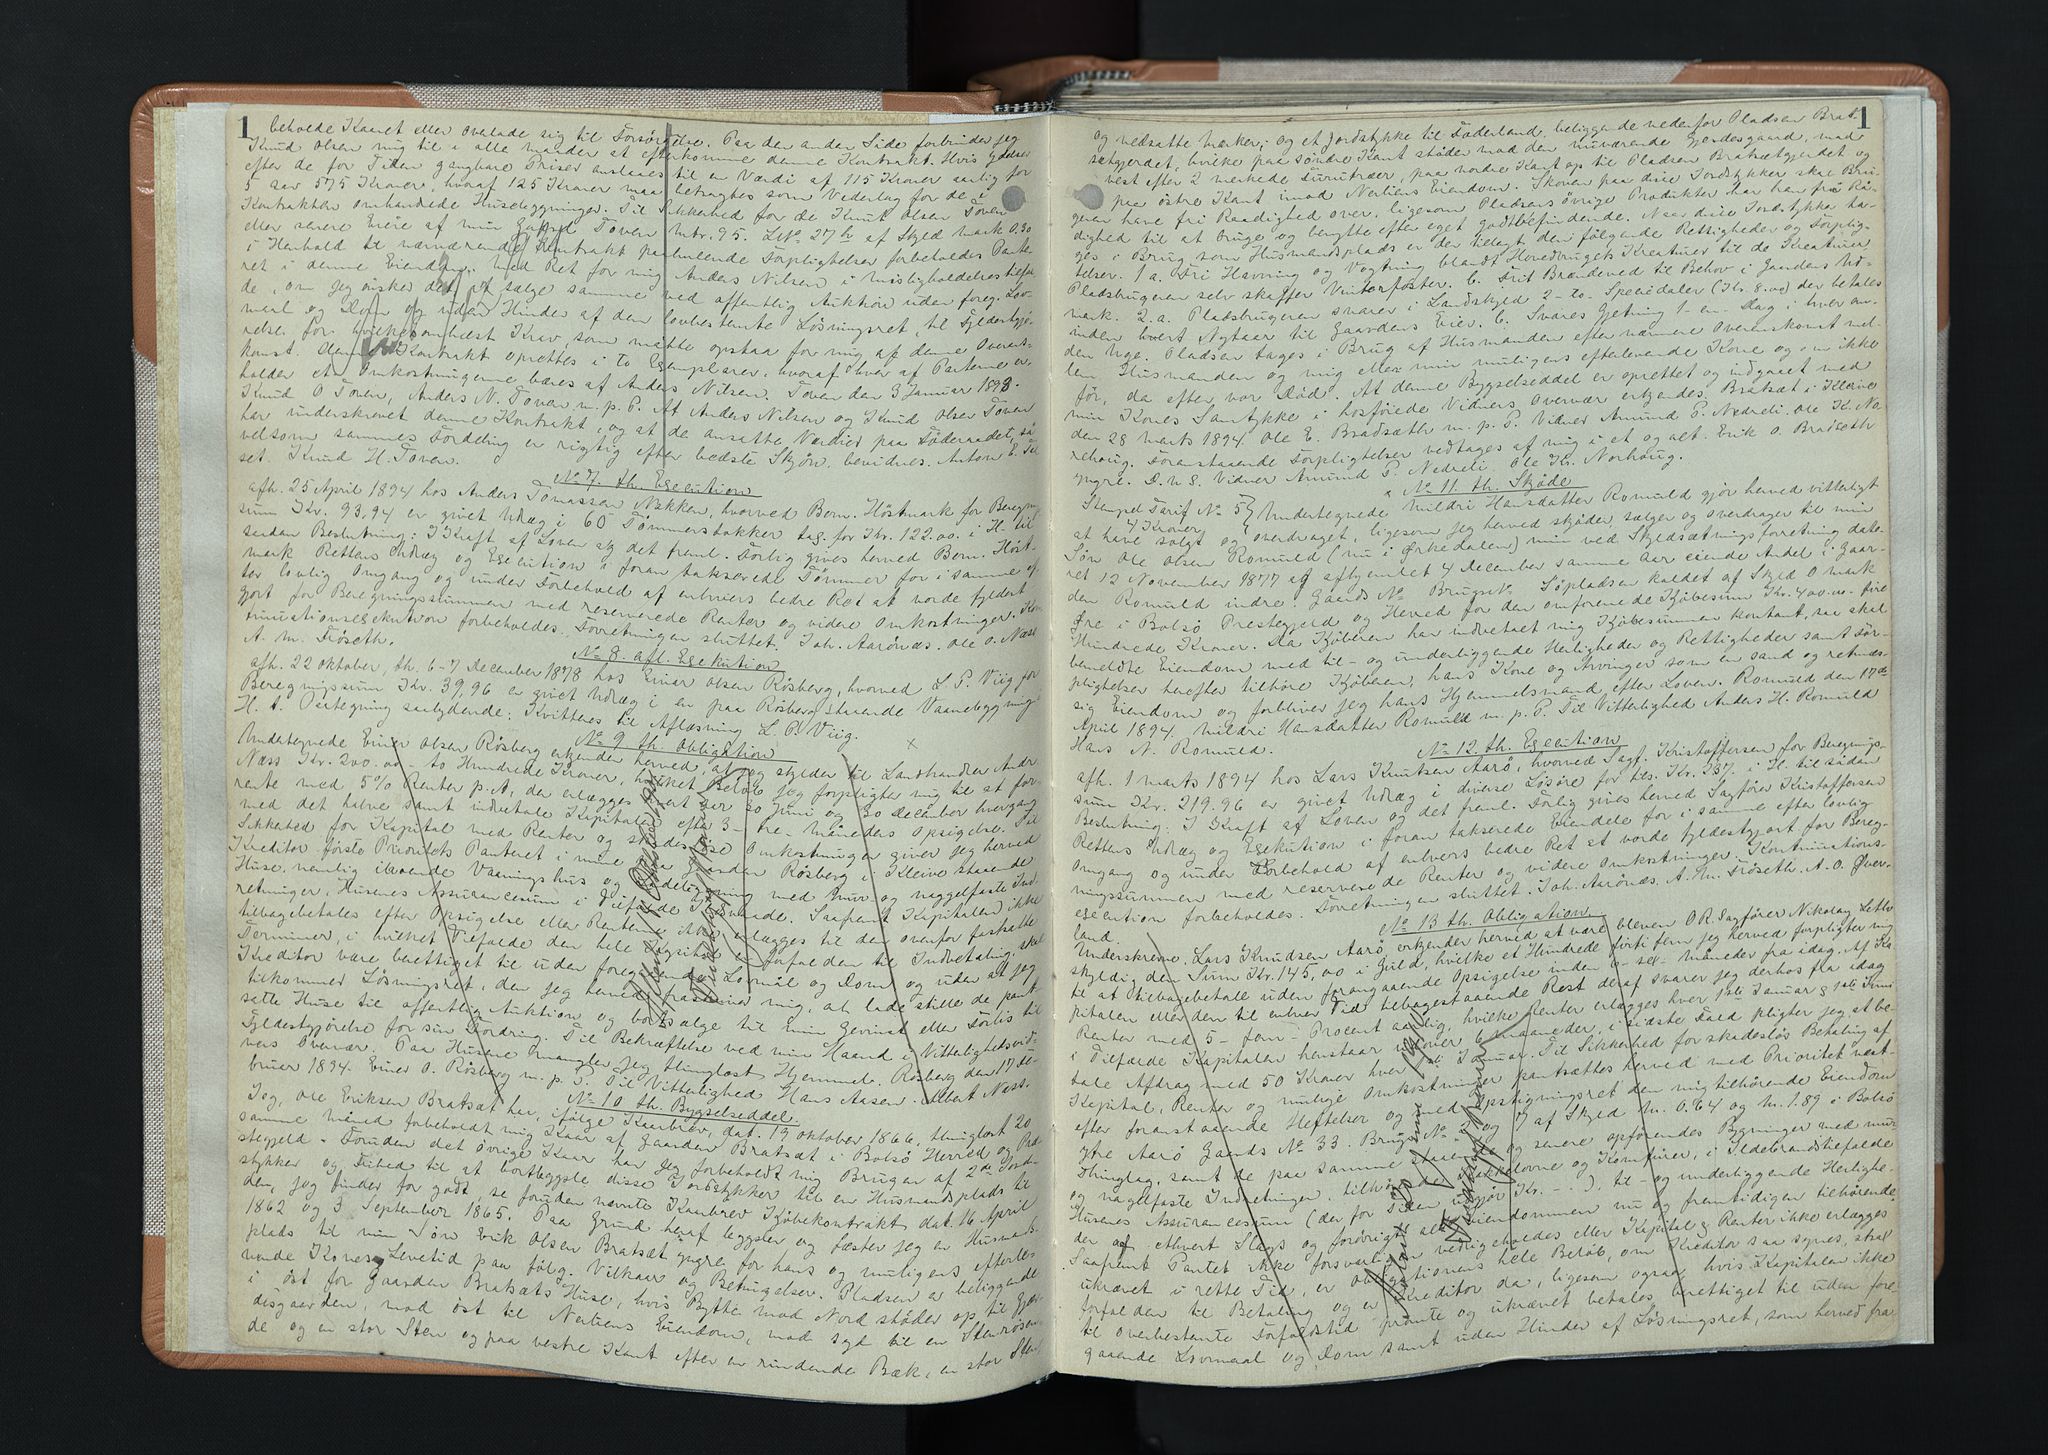 1
beholde Kaaret eller overlade sig til Forsørgelse. Paa den anden Side forbinder jeg
Knud Olsen mig til i alle Maader at efterkomme denne Kontrakt. Hvis Ydelser
efter de for Tiden gangbare Priser ansla­aes til en Værdi af 115 Kroner aarlig for
5 Aar 575 Kroner, hvoraf 125 Kroner maa betragtes som Vederlag for de i
Kontrakten omhandlede Husebygninger. Til Sikkerhed for de Knud Olsen Toven
eller senere Eiere af min Gaard Toven Mtr. 95. LNo 27 b af Skyld Mark 0.30
i Henhold til nærværende Kontrakt paahvilende Forpligtelser forbeholdes Pante-
ret i denne Eiendom. Med Ret for mig Anders Nilsen i Misligholdelsestilfæl-
de, om jeg ønsker det at sælge samme ved offentlig Auktion uden foreg. Lov-
maal og Dom og uden Hinder af den lovbestemte Løsningsret, til Fyldestgjø-
relse for hvilketsomhelst Krav, som maatte opstaa for mig af denne Overens-
komst. Denne Kontrakt oprettes i to Exemplarer, hvoraf hver af Parterne er-
holder et. Omkostningerne bæres af Anders Nilsen. Toven den 3 Januar 1893.
Knud O Toven, Anders N. Toven m. p. P. At Anders Nilsen og Knud Olsen Toven
har underskrevet denne Kontrakt, og at de ansatte Værdier paa Føderaadet, saa
velsom sammes Fordeling er rigtig efter bedste Skjøn, bevidnes. Anton E.
set. Knud H. Toven.
No 7. th. Execution
afh. 25 April 1894 hos Anders Tomassen Nøkken, hvorved Bern. Høstmark for Beregning
sum Kr. 93,94 er givet Udlæg i 60 Tømmerstokker tag. for Kr. 122.00. i H. til
saadan Beslutning: I Kraft af Loven og det freml. Forlig gives herved Bern. Høst-
mark Rettens Udlæg og Execution i foran takserede Tømmer for i samme ef-
ter lovlig Omgang og under Forbehold af enhvers bedre Ret at vorde fyldest-
gjort for Beregningssummen med reserverede Renter og videre Omkostninger. Kon
tinuationsexekution forbeholdes. Forretningen sluttet. Joh. Aarönæs. Ole O. Næss
A. M. Fröseth.
No 8. afl. Exekution
afh. 22 Oktober, th. 6-7 December 1878 hos Einer Olsen Røsberg, hvorved L P. Viig for
Beregningssum Kr. 39,96 er givet Udlæg i en paa Røsberg staaende Vaanebygning
H. t. Paategning saalydende: Kvitteres til Aflæsning L. P. Viig.
No 9 th. Obligation
Undertegnede Einer Olsen Røsberg erkjender herved, at jeg skylder til Landhandler Andr.
Næss Kr. 200.00 - to Hundrede Kroner, hvilket Beløb jeg forpligter mig til at for-
rente med 5% Renter p. A. der erlægges hvert Aar 30 Juni og 30 December hvergang
med det halve samt indbetale Kapitalen efter 3 - tre - Maaneders Opsigelse. Til
Sikkerhed for Kapital med Renter og skadesløse Omkostninger giver jeg herved
Kreditor første Prioritets Panteret i mine paa Gaarden Røsberg i Kleive staaende
Huse nemlig iboende Vaaningshus og Udebygning med Mur og naggelfaste Ind-
retninger, Husenes Assurancesum i Tilfælde Ildsvaade. Saafremt Kapitalen ikke
tilbagebetales efter Opsigelse eller Renterne ikke erlægges til den ovenfor fastsatte
Terminer, i hvilket Tilfælde den hele Kapital er forfalden til Indbetaling, skal
Kreditor være berettiget til uden foregaaende Lovmål og Dom og uden at jeg
tilkommer Løsningsret, den jeg herved frasiger mig, at lade stille de pant-
satte Huse til offentlig Auktion og bortsælge til min Gevinst eller Forlis til
Fyldestgjørelse for sin Fordring. Til Bekræftelse ved min Haand i Vitterlighedsvid-
ners Overvær. Paa Husene mangler jeg thinglæst Hjemmel. Røsberg den 17 Fe-
bruar 1894. Einer O. Røsberg m. p. P. Til Vitterlighed Hans Aasen. Albert Næss.
No 10 th. Bygselseddel.
Jeg, Ole Eriksen Bratsæt har, ifølge Kaarbrev, dat. 19 Oktober 1866, thinglæst 20
samme Maaned forbeholdt mig Kaar af Gaarden Bratsæt i Bolsø Herred og Præ-
stegjeld. Foruden det øvrige Kaar har jeg forbeholdt mig Brugen af 2de Jord-
stykker og Frihed til at bortbygsle disse Jordstykker til en Husmandsplads til
den, jeg finder for godt, se foruden nævnte Kaarbrev Kjøbekontrakt dat. 16. April
1862 og 3 September 1865. Paa Grund heraf bygsler og fæster jeg en Husmands-
plads til min Søn Erik Olsen Bratsæt yngre for hans og muligens efterle-
vende Kones Levetid paa følg. Vilkaar og Betingelser. Pladsen er beliggende
i Øst for Gaarden Bratsæts Huse, hvis Bytte mod Nord støder op til Gjær-
desgaarden, mod Øst til Nerliens Eiendom, mod Syd til en Stenrøse
de og en stor Sten og paa vestre Kant efter en rindende Bæk, en stor Sten
1
og nedsatte Mærker; og et Jordstykke til Foderland, beliggende nedenfor Pladsen Brat-
sætgjerdet, hvilke paa søndre Kant støder mod den nuværende Gjerdesgaard, mod
vest efter 2 merkede Furutræer, paa nordre Kant op til Pladsen Bratsætgjerdet og
paa østre Kant imod Nerliens Eiendom. Skoven paa disse Jordstykker skal Bru-
geren have fri Raadighed over, ligesom Pladsens øvrige Produkter har han fri Raa-
dighed til at bruge og benytte efter eget Godtbefindende. Naar disse Jordstykker ta-
ges i Brug som Husmandsplads er der tillagt den følgende Rettigheder og Forplig-
telser. 1 a. Fri Havning og Vogtning blandt Hovedbrugets Kreaturer til de Kreaturer
Pladsbrugeren selv skaffer Vinterfoster. b. Frit Brændeved til Behov i Gaardens Ud-
mark. 2. a. Pladsbrugeren svarer i Landskyld 2 - to - Speciedaler (Kr. 8.00) der betales
inden hvert Nytaar til Gaardens Eier. b. Svares Gjetning 1 - en - Dag i hver an-
den Uge. Pladsen tages i Brug af Husmanden efter nærmere Overenskomst mel-
lem Husmanden og mig eller min muligens efterlevende Kone og om ikke
før, da efter vor Død. At denne Bygselseddel er oprettet og indgaaet med
min Kones Samtykke i hosføiede Vidners Overvær erkjendes. Bratsæt i Kleive
den 28 Marts 1894. Ole E. Bradsæth m. p. P. Vidner Amund P. Nedreli. Ole K. No
rehoug. Foranstaaende Forpligtelser vedtages af mig i et og alt. Erik O. Bradsæth
yngre. D. u. S. Vidner Amund P. Nedreli. Ole Kr. Norhoug.
No 11. th. Skjøde
Stempel Tarif No 5 } Undertegnede Mildri Hansdatter Romuld gjør herved vitterligt
4 Kroner,
at have solgt og overdraget, ligesom jeg herved skjøder, sælger og overdrager til min
Søn Ole Olsen Romuld (nu i Ørkedalen) min ved Skyldsætningsforretning date-
ret 12 November 1877 og afhjemlet 4 December samme Aar eiende Andel i Gaar-
den Romuld indre. Gaards No Brugs No Søpladsen kaldet af Skyld 0 Mark
Øre i Bolsø Prestegjeld og Herred for den omforenede Kjøbesum Kr. 400.00 - fire
Hundrede Kroner. Da Kjøberen har indbetalt mig Kjøbesummen kontant, saa skal
bemeldte Eiendom med til- og underliggende Herligheder og Rettigheder samt For-
pligtelser herefter tilhøre Kjøberen, hans Kone og Arvinger som en sand og retmæs-
sig Eiendom og forbliver jeg hans Hjemmelsmand efter Loven. Romuld den 17de
April 1894. Mildri Hansdatter Romuld m. p. P. Til Vitterlighed Anders H. Romuld
Hans N. Romuld.
No 12. th. Execution
afh. 1 Marts 1894 hos Lars Knutsen Aarø, hvorved Sagf. Kristoffersen for Beregnings-
sum Kr. 219.96 er givet Udlæg i diverse Løsøre for tils. Kr. 237. i H. til saadan
Beslutning: I Kraft af Loven og det freml. Forlig gives herved Sagfører Kristoffersen
Rettens Udlæg og Exekution i foran takserede Eiendele for i samme efter lovlig
Omgang og under Forbehold af enhvers bedre Ret at vorde fyldestgjort for Bereg-
ningssummen med reserverede Renter og videre Omkostninger. Kontinuations-
execution forbeholdes. Forretningen sluttet. Joh. Aarönæs. A. M. Fröseth. A. O. Øver-
land.
No 13 th. Obligation
Underskrevne, Lars Knudsen Aarø erkjender herved at være bleven O.R.Sagfører Nikolay Leth
skyldig den Sum Kr. 145,00 i Guld, hvilke et Hundrede førti fem jeg herved forpligter mig
til at tilbagebetale uden forangaaende Opsigelse inden 6 - sex - Maaneder fra idag. Af Ka-
pitalen eller den til enhver Tid tilbagestaaende Rest deraf svarer jeg derhos fra idag
Renter med 5 - fem - Procent aarlig, hvilke Renter erlægges hver 1ste Januar & 1ste Juni
i Tilfælde Kapitalen henstaar udover 6 Maaneder, i sidste Fald pligter jeg at be-
tale Afdrag med 50 Kroner hver 1ste Januar. Til Sikkerhed for skadesløs Betaling af
Kapital, Renter og mulige Omkostninger pantsættes herved med Prioritet næst
efter foranstaaende Heftelser og med Opstigningsret den mig tilhørende Eiendom
ytre Aarø Gaards No 33. Brugs No 2 og 7 af Skyld M. 0.64 og M. 1.89 i Bolsø
Thinglag, samt de paa samme staaende og senere opførendes Bygninger med mur
og nagelfaste Indretninger, tilhørende Kakkelovne og Komfürer, i Ildebrandstilfælde
Husenes Assurancesum (der for Tiden udgjør Kr. - ), til- og underliggende Herlighe-
der af ethvert Slags og forøvrigt alt Eiendommen nu og fremtidigen tilhørende.
Saafremt Pantet ikke forsvarlig vedligeholdes eller Kapital & Renter ikke erlægges
ukrævet i rette Tid, er Obligationens hele Beløb, om Kreditor saa synes, strax
forfalden til Betaling og er Kreditor da, ligesom ogsaa hvis Kapitalen ikke
til ovenbestemte Forfaldstid promte og ukrævet betales berettiget til uden fore-
gaaende Lovmaal og Dom samt uden Hinder af Løsningsret, som herved fra